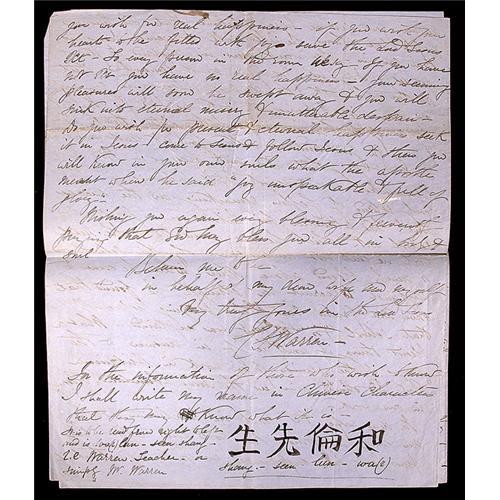 you wish for real happiness - if you wish your
hearts to be filled with joy serve the Lord Jesus
not you have no real happiness - your seeming
pleasures will soon be swept away & you will
sink into eternal misery & unutterable despair -
Do you wish for present & eternal happiness seek
it in Jesus - come to Jesus & follow Jesus & then you
will know in your own souls what the apostle
meant when he said "joy unspeakable & full of
glory" -
Wishing you again every blessing &
praying that God may bless you all in body &
soul
Believe me to be
in behalf of my dear wife and myself
very truly yours in the Lord Jesus
C F Warren -
For the information of those who wish to know
I shall write my name in Chinese Characters
that they may know what it is -
It is to be read from right to left
and is wa(o) lun - seen shang -
i.e. Warren Teacher - or
simply Mr. Warren
生先倫和
shang - seen lun - wa(o)